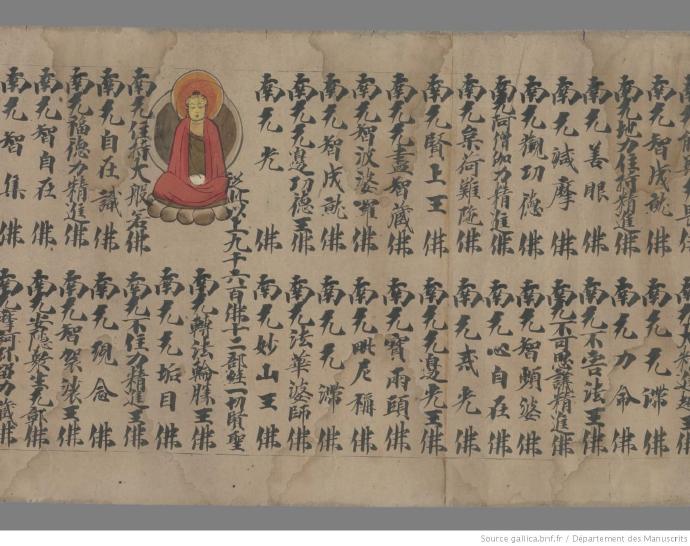 南无智成就佛　南无无滯佛
南无地力住持精進佛　南无力命佛
南无善眼佛　南无不空法王佛
南无減摩佛　南无不可思議精進佛
南无觀功德佛　南无智頻婆佛
南无阿僧伽力精進佛　南无心自在佛
南无集荷難陀佛　南无光佛
南无賢上王佛　南无无邊光王佛
南无无盡智藏佛　南无寶雨頭佛
南无智波婆羅佛　南无毗尼稱佛
南无智成就佛　南无无滯佛
南无无邊功德王佛　南无法華婆師佛
南无光佛　南无妙山王佛
從此以上九千六百佛十二部經一切賢聖
南无轉法輪勝王佛
南无无垢目佛
南无住持大般若佛　南无不住力精進王佛
南无自在識佛　南无觀念佛
南无福德力精進佛　南无智袈裟王佛
南无智自在佛　南无佛
南无智集佛